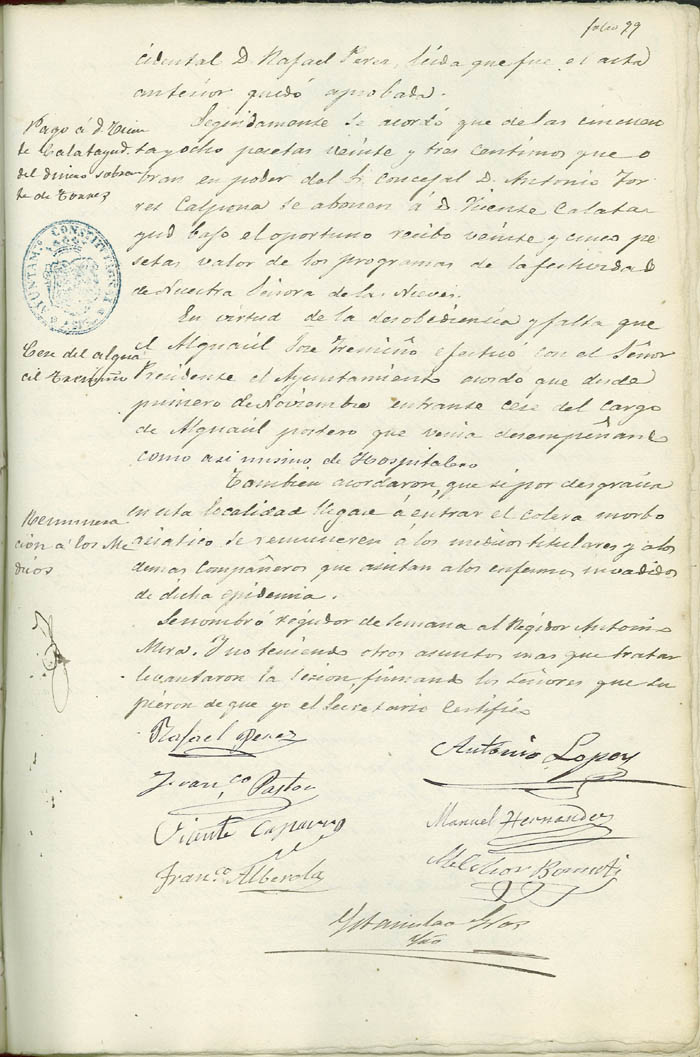 folio 99
cidental D. Rafael Perez, leida que fue el acta
anterior quedó aprobada.
Pago á D. Vicen
te Calatayud
del dinero sobran
te de Torres
Seguidamente se acordó que de las cincuen
ta y ocho pesetas veinte y tres centimos que o
bran en poder del Sr. Concejal D. Antonio Tor
res Calpena se abonen á D. Vicente Calata
yud bajo el oportuno recibo veinte y cinco pe
setas valor de los programas de la festividad
de Nuestra Señora de las Nieves.
AYUNTAM. CONSTITUCIONAL
Cese del algua
cil Treviño
En virtud de la desobediencia y falta que
el Alguacil José Treviño efectuó con el Señor
Presidente el Ayuntamiento acordó que desde
primero de Noviembre entrante cese del cargo
de Alguacil portero que venia desempeñando
como asi mismo de Hospitalero
Remunera
ción á los Me
dicos
Tambien acordaron, que si por desgracia
en esta localidad llegase á entrar el colera morbo
asiatico se remuneren á los medicos titulares y a los
demas compañeros que asistan a los enfermos invadidos
de dicha epidemia.
Se nombró regidor de semana al Regidor Antonio
Mira. Y no teniendo otros asuntos mas que tratar
levantaron la sesion firmando los Señores que su
pieron de que yo el Secretario Certifico
Rafael Perez
Antonio Lopez
Franco Pastor
Vicente Caparros
Manuel Hernandez
Franco Alberola
Melchor
Srio